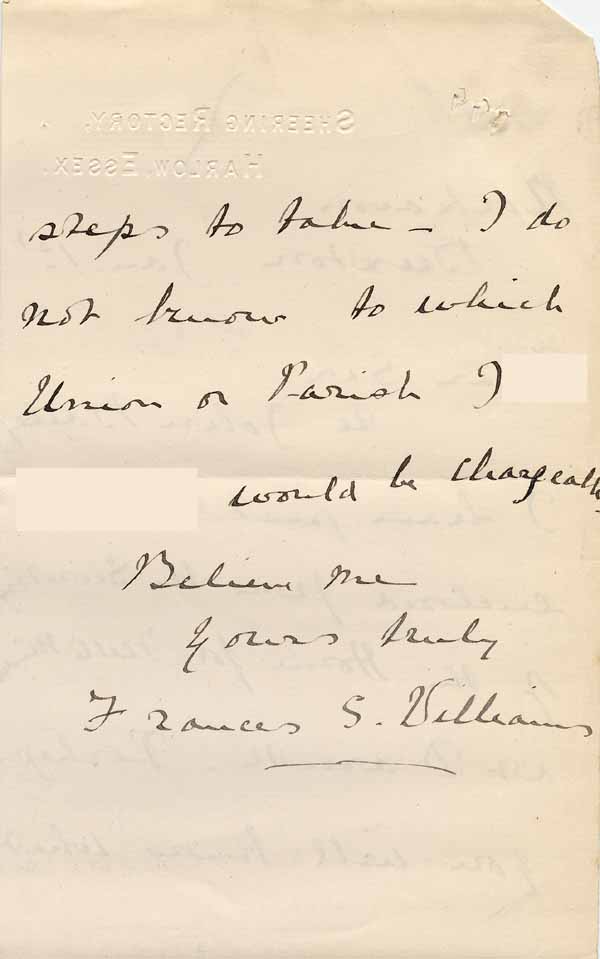 SHEERING RECTORY,
HARLOW, ESSEX.
steps to take – I do
not know to which
Union or Parish I
would be chargeable
Believe me
Yours truly
Frances S. Williams